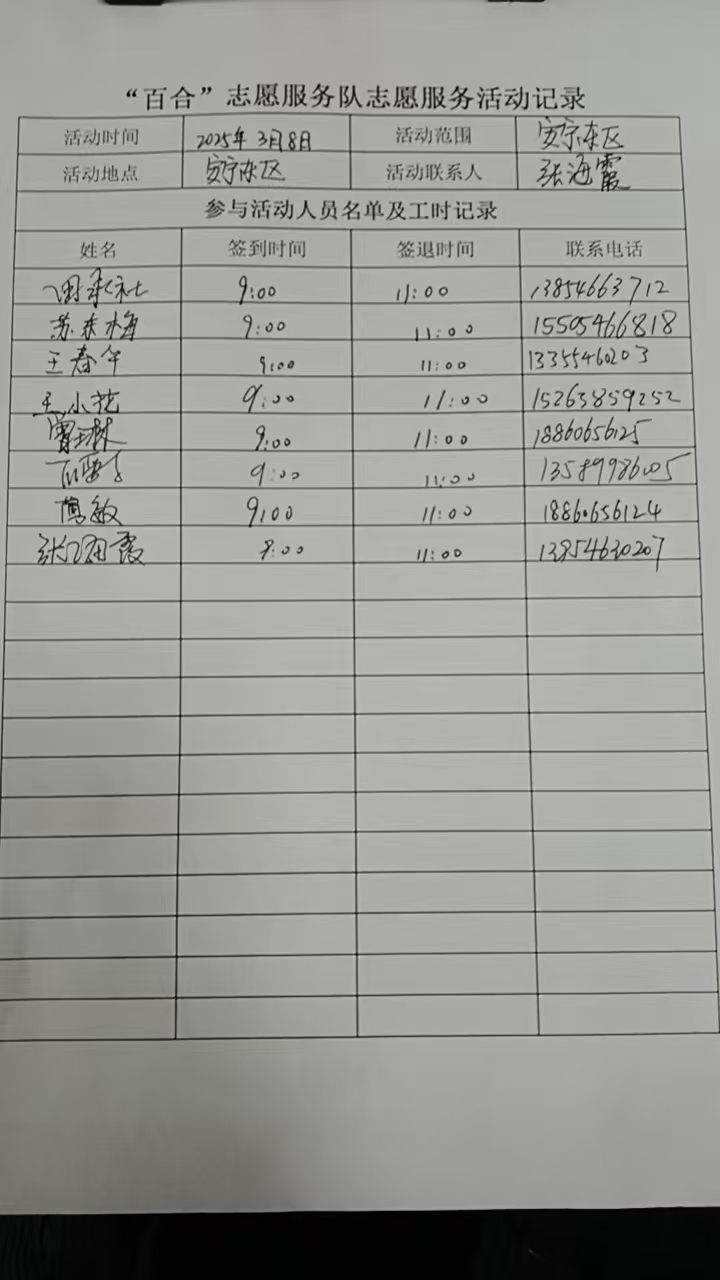 “百合”志愿服务队志愿服务活动记录
活动时间 2025年3月8日 活动范围 安宁东区
活动地点 安宁东区 活动联系人 张海霞
参与活动人员名单及工时记录
姓名 签到时间 签退时间 联系电话
9:00 11:00 13854663712
苏东梅 9:00 11:00 15505466818
王春午 9:00 11:00 13355460203
王小花 9:00 11:00 15263859252
9:00 11:00 18860656125
9:00 11:00 13589986005
9:00 11:00 18860656124
张海霞 8:00 11:00 13854630207